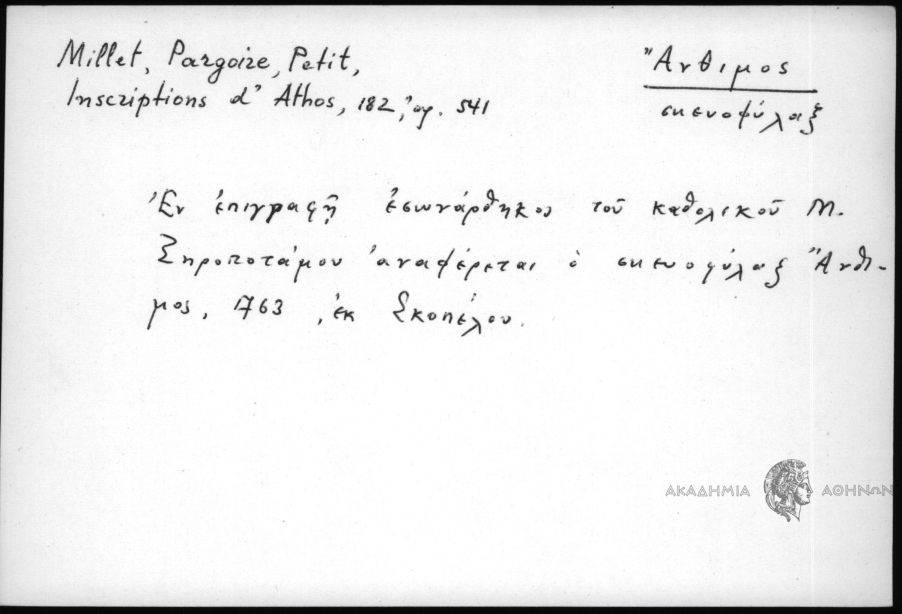 Millet, Pargoire, Petit,
Inscriptions d' Athos, 182, ἀρ. 541
Ἄνθιμος
σκευοφύλαξ
Ἐν ἐπιγραφῇ ἐσωνάρθηκος τοῦ καθολικοῦ Μ.
Ξηροποτάμου ἀναφέρεται ὁ σκευοφύλαξ Ἄνθι-
μος, 1763, ἐκ Σκοπέλου.
ΑΚΑΔΗΜΙΑ ΑΘΗΝΩΝ